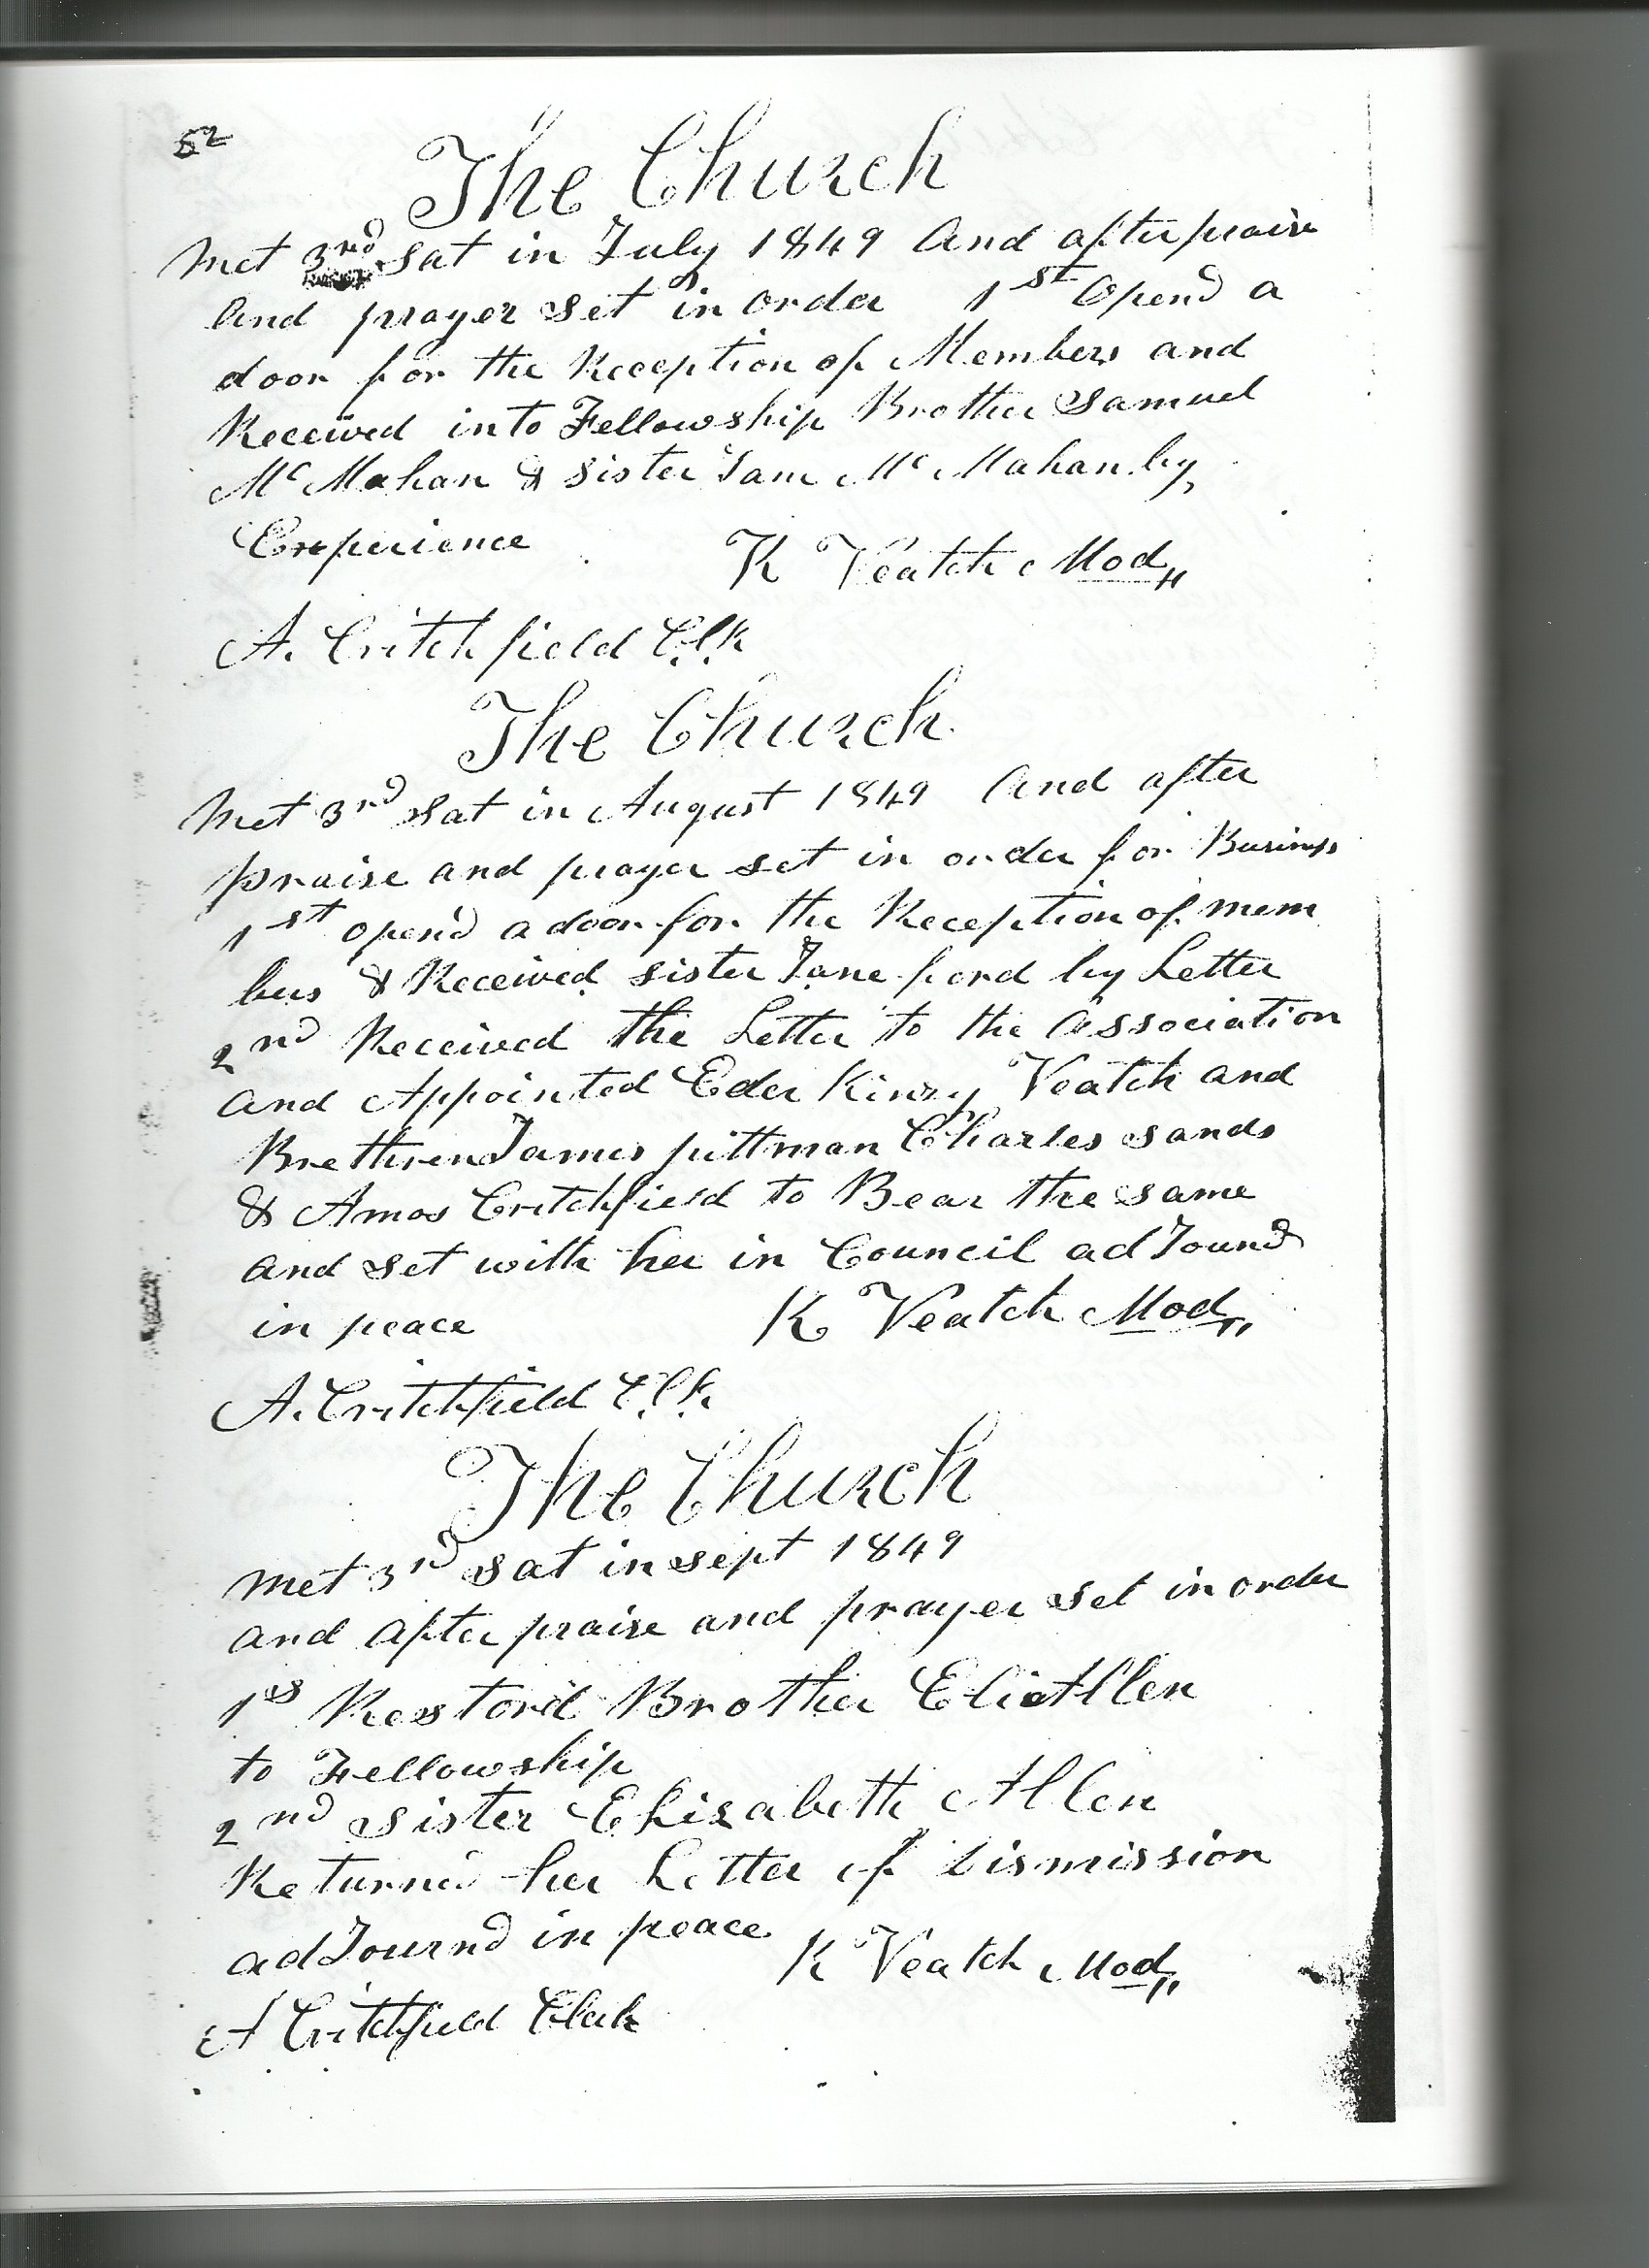 52
The Church
Met 3rd Sat in July 1849 And after praise
And prayer set in order 1st Opend a
door for the Reception of Members and
Received into Fellowship Brother Samuel
Mc Mahan & Sister Jane Mc Mahan by
Experience K Veatch Mod,,
A. Critchfield Clk
The Church
Met 3rd Sat in August 1849 And after
praise and prayer set in order for Business
1st open'd a door for the Reception of mem
bers & Received sister Jane ford by Letter
2nd Received the Letter to the Association
And Appointed Eder Kinzy Veatch and
Brethren James pittman Charles sands
& Amos Critchfield to Bear the same
and set with her in Council adJournd
in peace K Veatch Mod,,
A. Critchfield Clk
The Church
Met 3rd Sat in sept 1849
And after praise and prayer set in order
1s Restor'd Brother Eli Allen
to Fellowship
2nd Sister Elizabeth Allen
Returnd her Letter of Dismission
adJournd in peace K Veatch Mod,,
A Critchfield Clerk